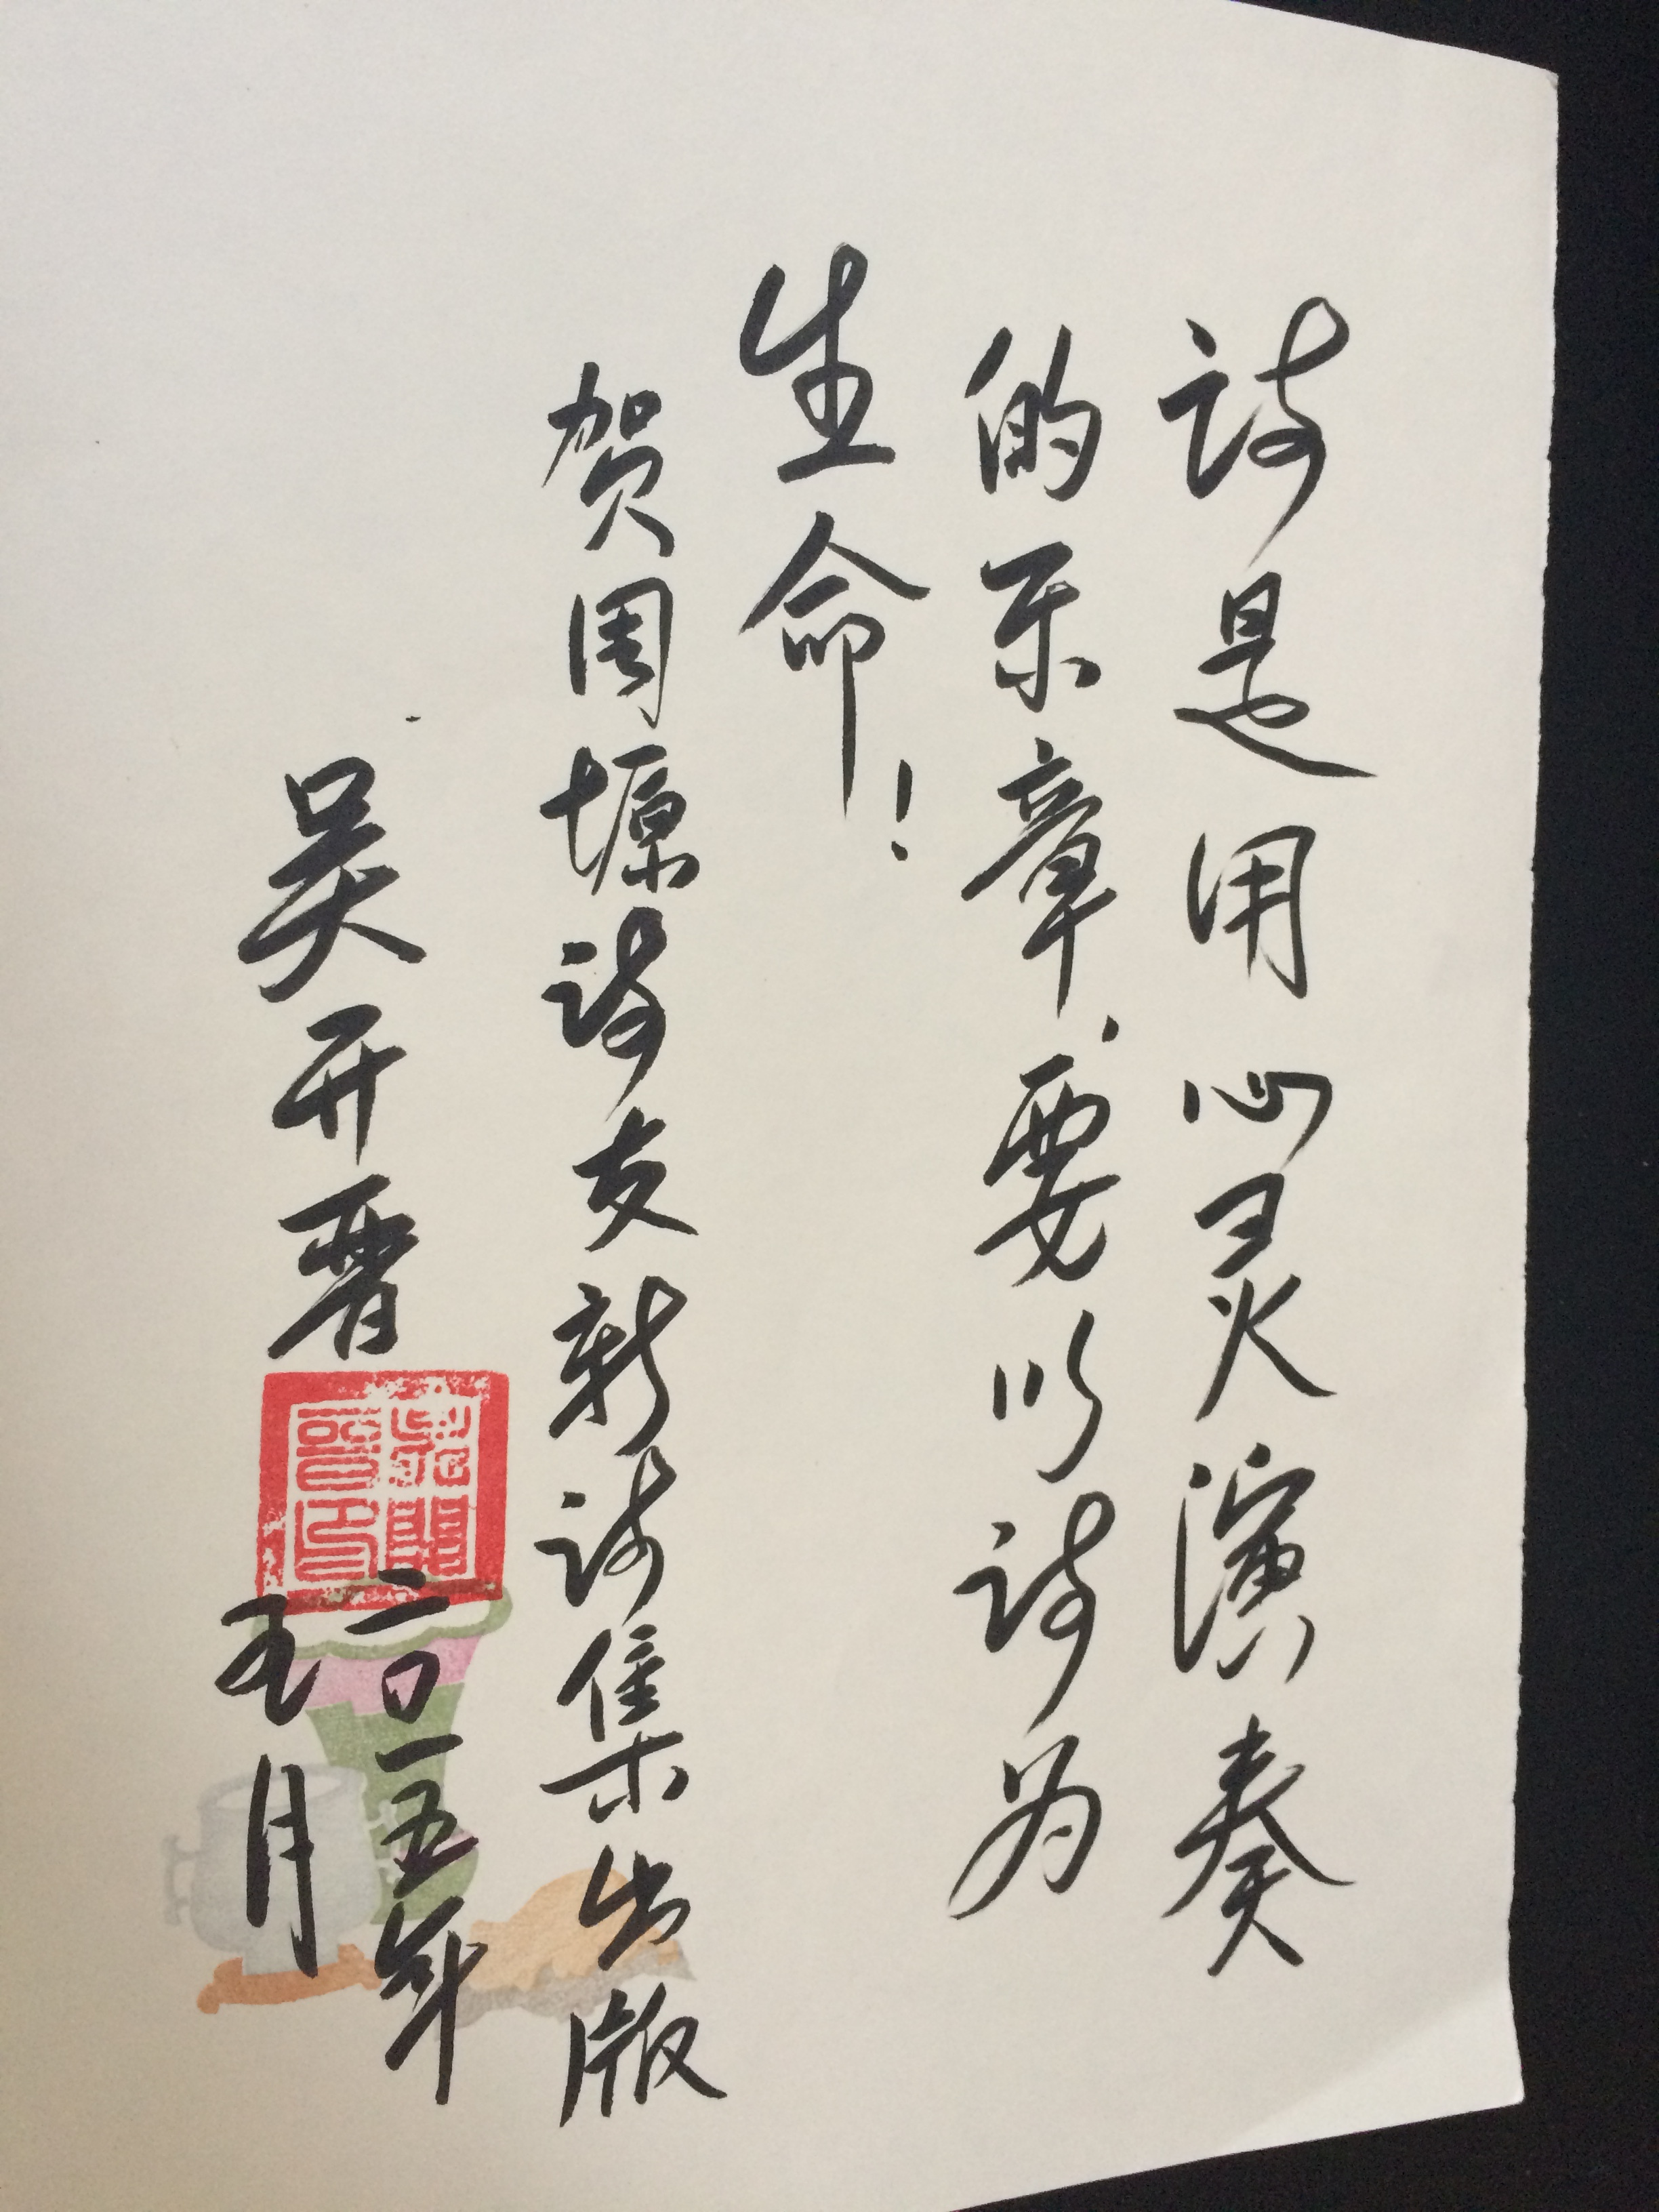 诗是用心灵演奏
的乐章，要以诗为
生命！
贺周塬诗友新诗集出版
吴开晋
二〇一五年
五月
吴開晋印